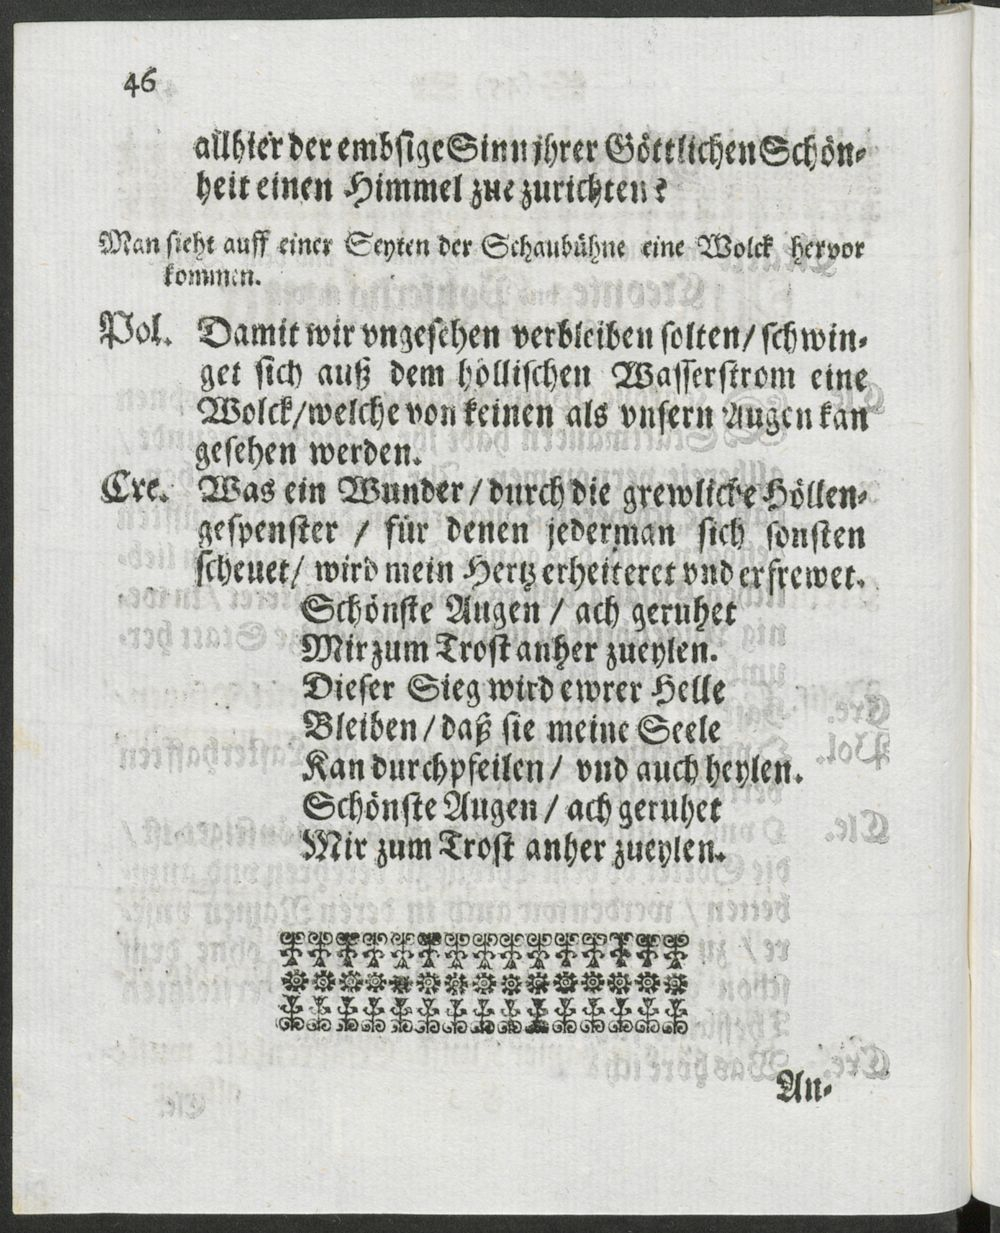 46
allhier der embsige Sinn jhrer Göttlichen Schön-
heit einen Himmel zue zurichten?
Man sieht auff einer Seyten der Schaubühne eine Wolck hervor
kommen.
Pol. Damit wir vngesehen verbleiben solten/ schwin-
get sich auß dem höllischen Wasserstrom eine
Wolck/ welche von keinen als vnsern Augen kan
gesehen werden.
Cre. Was ein Wunder / durch die grewliche Höllen-
gespenster / für denen jederman sich sonsten
scheuet/ wird mein Hertz erheiteret vnd erfrewet.
Schönste Augen / ach geruhet
Mir zum Trost anher zueylen.
Dieser Sieg wird ewrer Helle
Bleiben / daß sie meine Seele
Kan durchpfeilen / vnd auch heylen.
Schönste Augen / ach geruhet
Mir zum Trost anher zueylen.
An-